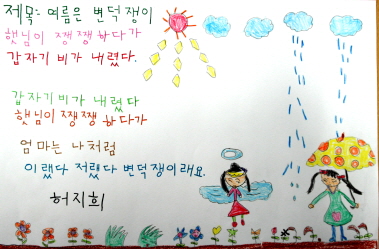 제목: 여름은 변덕쟁이
햇님이 쨍쨍하다가
갑자기 비가 내렸다.
갑자기 비가 내렸다
햇님이 쨍쨍하다가
엄마는 나처럼
이랬다 저랬다 변덕쟁이래요.
허지희